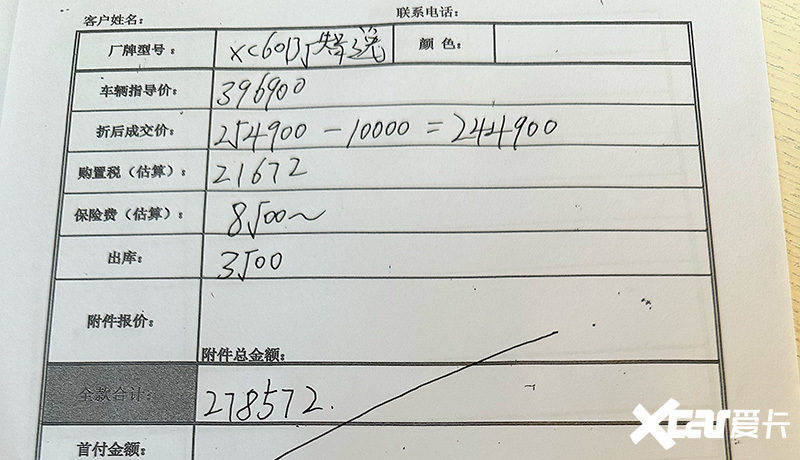 客户姓名：
联系电话：
厂牌型号： XC60B5智逸 颜 色：
车辆指导价： 396900
折后成交价： 254900 - 10000 = 244900
购置税（估算）： 21672
保险费（估算）： 8500~
出库： 3500
附件报价：
附件总金额：
全款合计： 278572.
首付金额：
Xcar爱卡